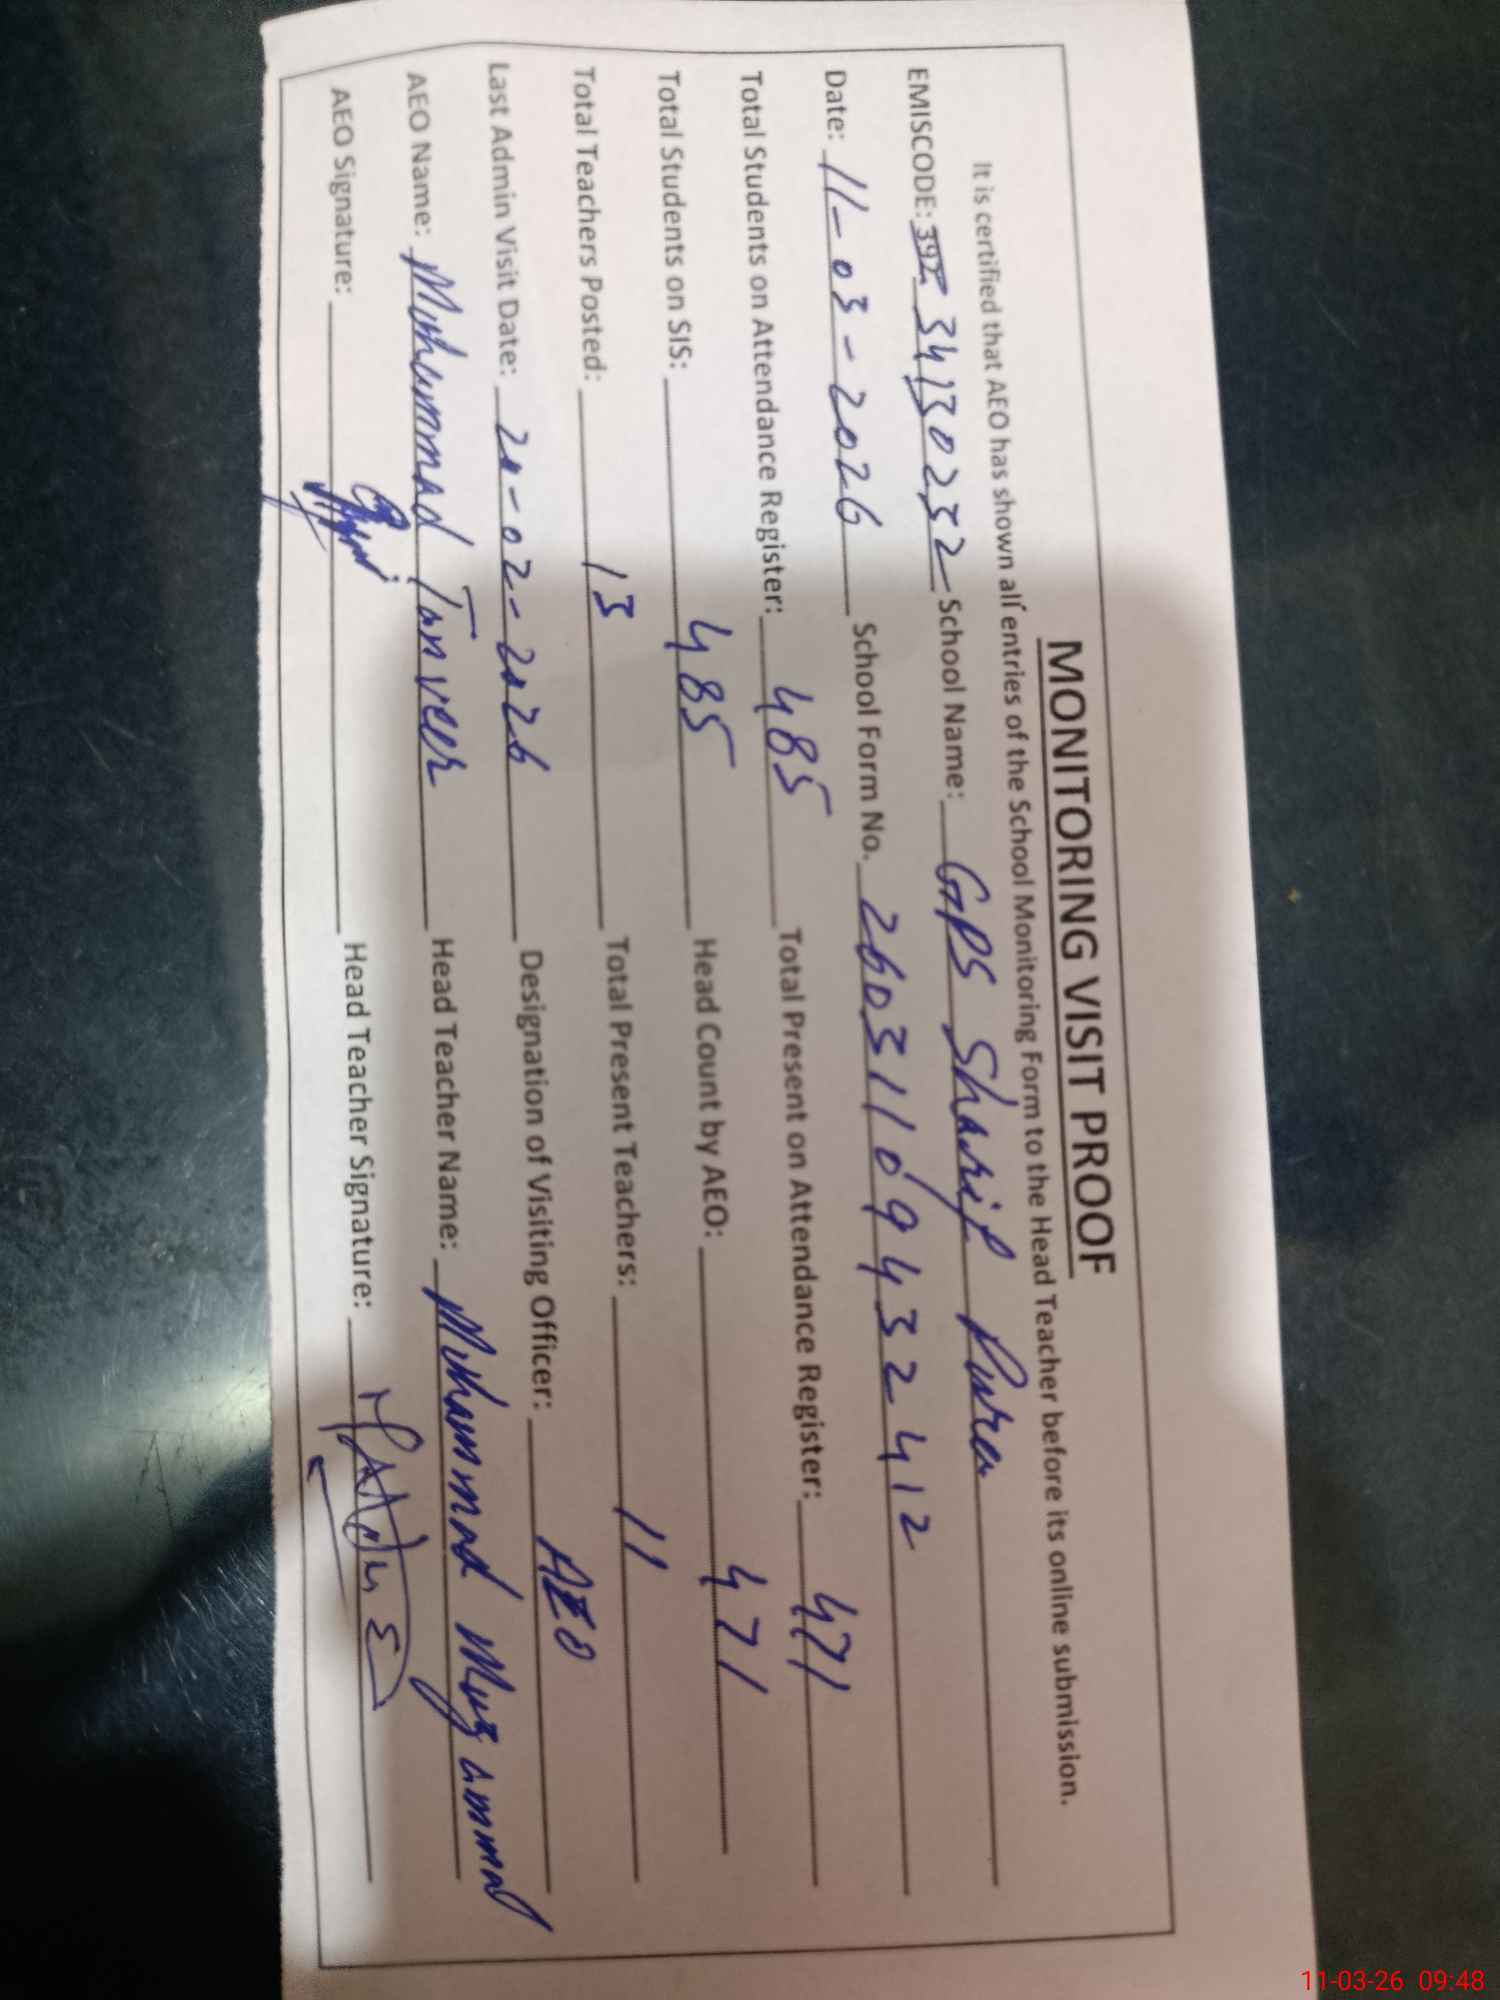 MONITORING VISIT PROOF
It is certified that AEO has shown all entries of the School Monitoring Form to the Head Teacher before its online submission.
EMISCODE: 34130232 School Name: GPS Sharif Pura
Date: 11-03-2026 School Form No. 26031109432412
Total Students on Attendance Register: 485 Total Present on Attendance Register: 471
Total Students on SIS: 485 Head Count by AEO: 471
Total Teachers Posted: 13 Total Present Teachers: 11
Last Admin Visit Date: 20-02-2026 Designation of Visiting Officer: AEO
AEO Name: Muhammad Tanveer Head Teacher Name: Muhammad Muzammal
AEO Signature: Head Teacher Signature:
11-03-26 09:48